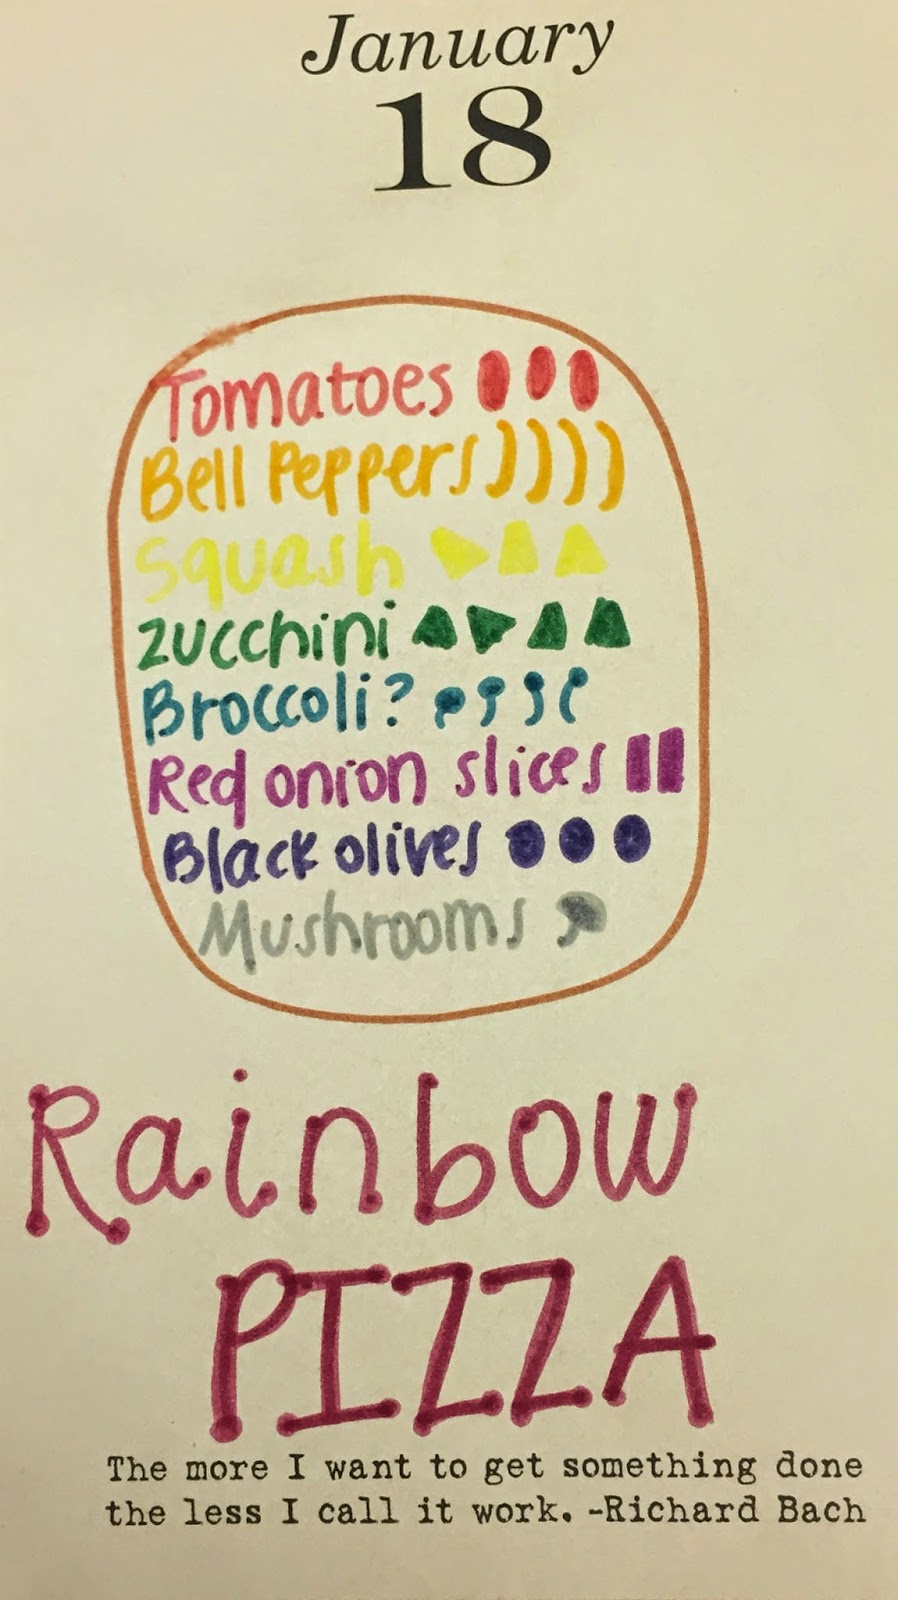 January
18
Tomatoes
Bell Peppers
Squash
Zucchini
Broccoli?
Red onion slices
Black olives
Mushrooms
Rainbow
PIZZA
The more I want to get something done
the less I call it work. -Richard Bach